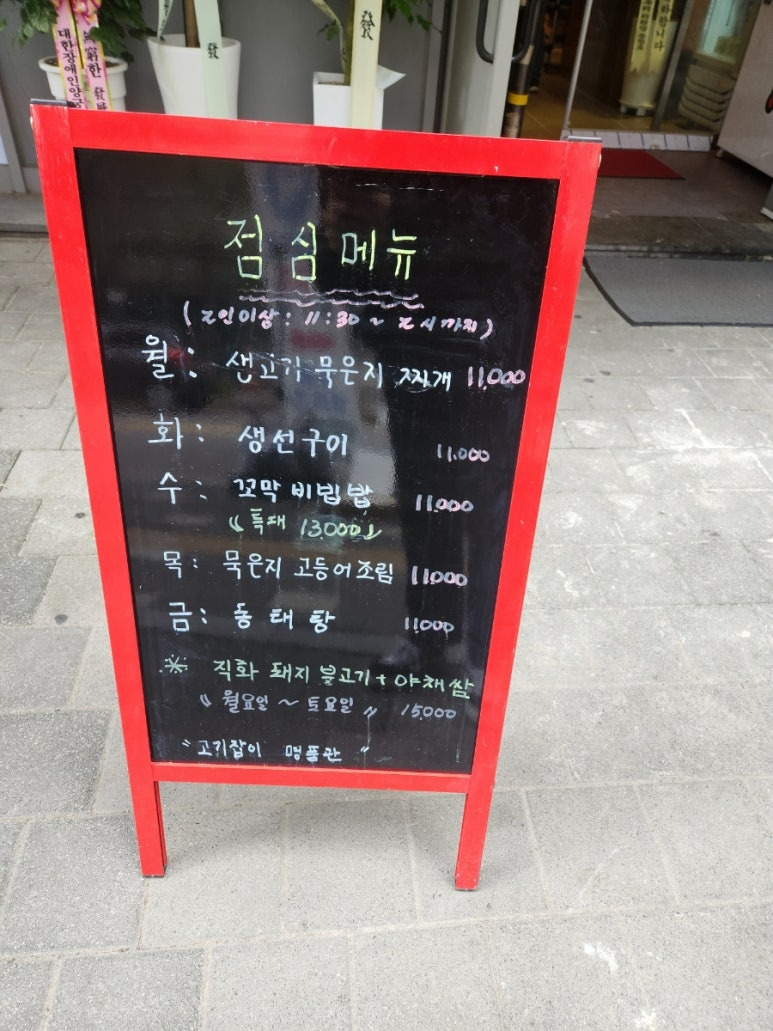 점심메뉴
(2인이상: 11:30 ~ 2시까지)
월: 생고기 묵은지 찌개 11,000
화: 생선구이 11,000
수: 꼬막 비빕밥 11,000
"특대 13,000"
목: 묵은지 고등어조림 11,000
금: 동태탕 11,000
※ 직화 돼지 불고기 + 야채쌈
"월요일 ~ 토요일" 15,000
"고기잡이 명품관"